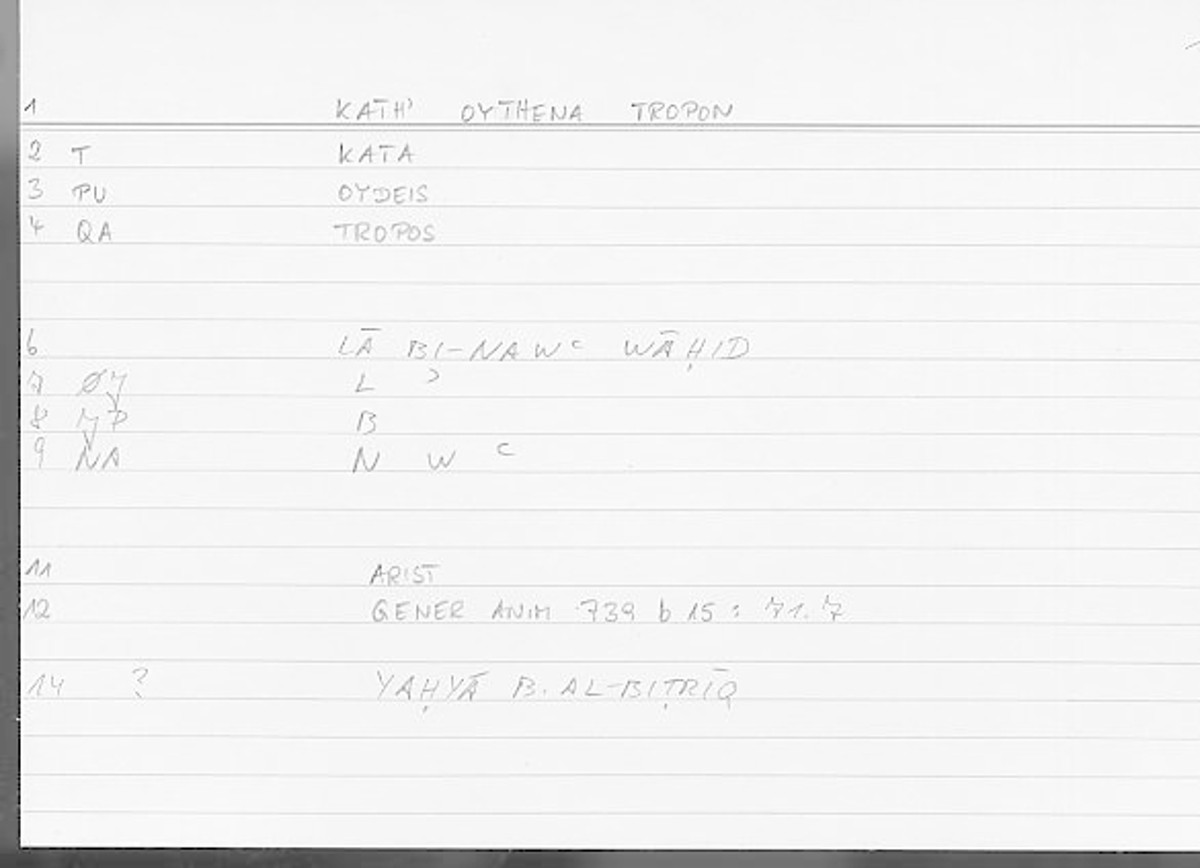 1 KATH' OYTHENA TROPON
2 T KATA
3 PU OYDEIS
4 QA TROPOS
6 LĀ BI-NAWʿ WĀḤID
7 ØY L ʾ
8 YP B
9 NA N W ʿ
11 ARIST
12 GENER ANIM 739 b 15 : 71.7
14 ? YAḤYĀ B. AL-BIṬRĪQ